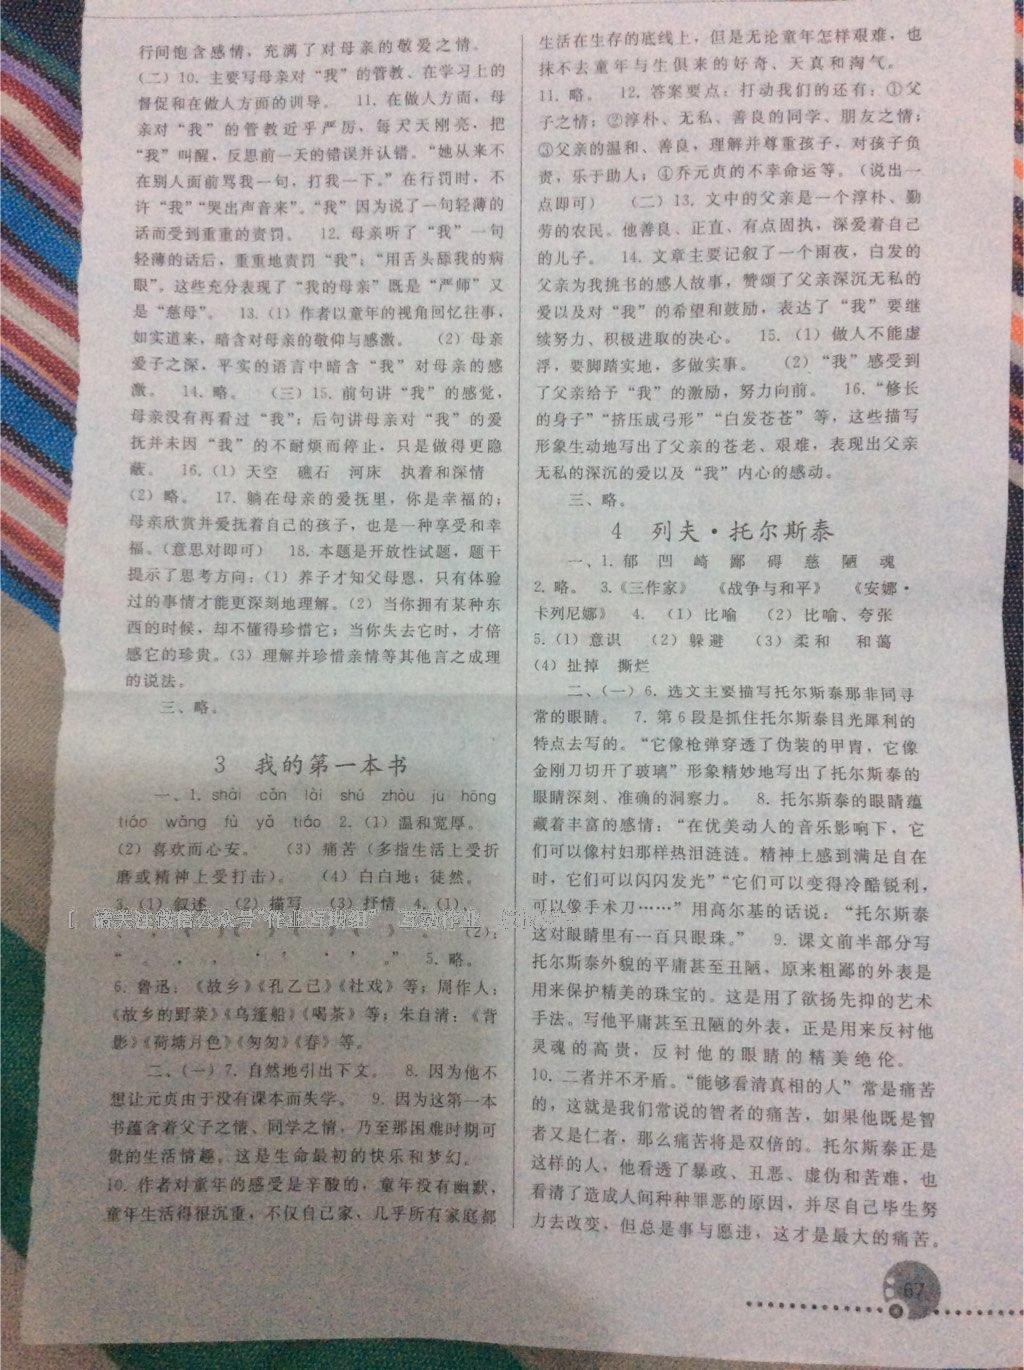 行间饱含感情，充满了对母亲的敬爱之情。
(二) 10. 主要写母亲对“我”的管教、在学习上的
督促和在做人方面的训导。 11. 在做人方面，母
亲对“我”的管教近乎严厉，每天天刚亮，把
“我”叫醒，反思前一天的错误并认错。“她从来不
在别人面前骂我一句，打我一下。”在行罚时，不
许“我”“哭出声音来”。“我”因为说了一句轻薄的
话而受到重重的责罚。 12. 母亲听了“我”一句
轻薄的话后，重重地责罚“我”；“用舌头舔我的病
眼”。这些充分表现了“我的母亲”既是“严师”又
是“慈母”。 13. (1) 作者以童年的视角回忆往事，
如实道来，暗含对母亲的敬仰与感激。 (2) 母亲
爱子之深，平实的语言中暗含“我”对母亲的感
激。 14. 略。 (三) 15. 前句讲“我”的感觉，
母亲没有再看过“我”；后句讲母亲对“我”的爱
抚并未因“我”的不耐烦而停止，只是做得更隐
蔽。 16. (1) 天空 礁石 河床 执着和深情
(2) 略。 17. 躺在母亲的爱抚里，你是幸福的；
母亲欣赏并爱抚着自己的孩子，也是一种享受和幸
福。(意思对即可) 18. 本题是开放性试题，题干
提示了思考方向：(1) 养子才知父母恩，只有体验
过的事情才能更深刻地理解。(2) 当你拥有某种东
西的时候，却不懂得珍惜它；当你失去它时，才倍
感它的珍贵。(3) 理解并珍惜亲情等其他言之成理
的说法。
三、略。
3 我的第一本书
一、1. shài cǎn lài shú zhòu jù hōng
tiáo wǎng fù yǎ tiáo 2. (1) 温和宽厚。
(2) 喜欢而心安。 (3) 痛苦 (多指生活上受折
磨或精神上受打击)。 (4) 白白地；徒然。
3. (1) 叙述 (2) 描写 (3) 抒情 4. (1)，
(2)：
“ 。 ， ， ‘ ’ ‘ ’ 。” 5. 略。
6. 鲁迅：《故乡》《孔乙己》《社戏》等；周作人：
《故乡的野菜》《乌篷船》《喝茶》等；朱自清：《背
影》《荷塘月色》《匆匆》《春》等。
二、(一) 7. 自然地引出下文。 8. 因为他不
想让元贞由于没有课本而失学。 9. 因为这第一本
书蕴含着父子之情、同学之情，乃至那困难时期可
贵的生活情趣。这是生命最初的快乐和梦幻。
10. 作者对童年的感受是辛酸的，童年没有幽默，
童年生活得很沉重，不仅自己家，几乎所有家庭都
生活在生存的底线上，但是无论童年怎样艰难，也
抹不去童年与生俱来的好奇、天真和淘气。
11. 略。 12. 答案要点：打动我们的还有：①父
子之情；②淳朴、无私、善良的同学、朋友之情；
③父亲的温和、善良，理解并尊重孩子，对孩子负
责，乐于助人；④乔元贞的不幸命运等。(说出一
点即可) (二) 13. 文中的父亲是一个淳朴、勤
劳的农民。他善良、正直、有点固执，深爱着自己
的儿子。 14. 文章主要记叙了一个雨夜，白发的
父亲为我挑书的感人故事，赞颂了父亲深沉无私的
爱以及对“我”的希望和鼓励，表达了“我”要继
续努力、积极进取的决心。 15. (1) 做人不能虚
浮，要脚踏实地，多做实事。 (2) “我”感受到
了父亲给予“我”的激励，努力向前。 16. “修长
的身子”“挤压成弓形”“白发苍苍”等，这些描写
形象生动地写出了父亲的苍老、艰难，表现出父亲
无私的深沉的爱以及“我”内心的感动。
三、略。
4 列夫·托尔斯泰
一、1. 郁 凹 崎 鄙 碍 慈 陋 魂
2. 略。 3.《三作家》 《战争与和平》 《安娜·
卡列尼娜》 4. (1) 比喻 (2) 比喻、夸张
5. (1) 意识 (2) 躲避 (3) 柔和 和蔼
(4) 扯掉 撕烂
二、(一) 6. 选文主要描写托尔斯泰那非同寻
常的眼睛。 7. 第6段是抓住托尔斯泰目光犀利的
特点去写的。“它像枪弹穿透了伪装的甲胄，它像
金刚刀切开了玻璃”形象精妙地写出了托尔斯泰的
眼睛深刻、准确的洞察力。 8. 托尔斯泰的眼睛蕴
藏着丰富的感情：“在优美动人的音乐影响下，它
们可以像村妇那样热泪涟涟。精神上感到满足自在
时，它们可以闪闪发光”“它们可以变得冷酷锐利，
可以像手术刀……”用高尔基的话说：“托尔斯泰
这对眼睛里有一百只眼珠。” 9. 课文前半部分写
托尔斯泰外貌的平庸甚至丑陋，原来粗鄙的外表是
用来保护精美的珠宝的。这是用了欲扬先抑的艺术
手法。写他平庸甚至丑陋的外表，正是用来反衬他
灵魂的高贵，反衬他的眼睛的精美绝伦。
10. 二者并不矛盾。“能够看清真相的人”常是痛苦
的，这就是我们常说的智者的痛苦，如果他既是智
者又是仁者，那么痛苦将是双倍的。托尔斯泰正是
这样的人，他看透了暴政、丑恶、虚伪和苦难，也
看清了造成人间种种罪恶的原因，并尽自己毕生努
力去改变，但总是事与愿违，这才是最大的痛苦。
67